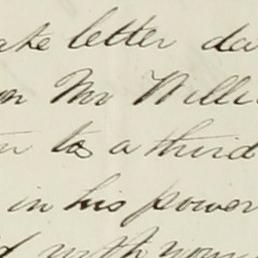 letter
Mr Willi
to a third
in his power
with your